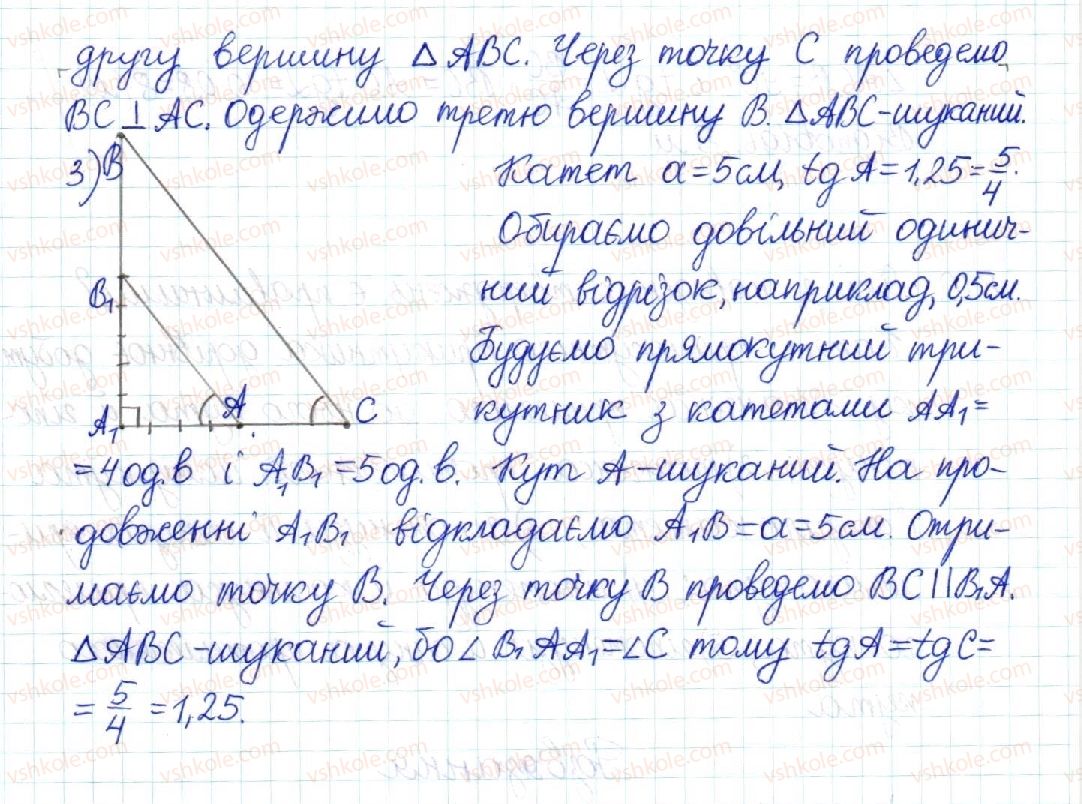 другу вершину △ABC. Через точку C проведемо
BC⊥AC. Одержимо третю вершину B. △ABC-шуканий.
3) B
Катет a=5см, tgA=1,25=5/4.
Обираємо довільний одинич-
B₁
ний відрізок, наприклад, 0,5см.
Будуємо прямокутний три-
A₁ A C
кутник з катетами AA₁=
=4од.в і A₁B₁=5од.в. Кут A-шуканий. На про-
довженні A₁B₁ відкладаємо A₁B=a=5см. Отри-
маємо точку B. Через точку B проведемо BC||B₁A.
△ABC-шуканий, бо ∠B₁AA₁=∠C тому tgA=tgC=
=5/4=1,25.